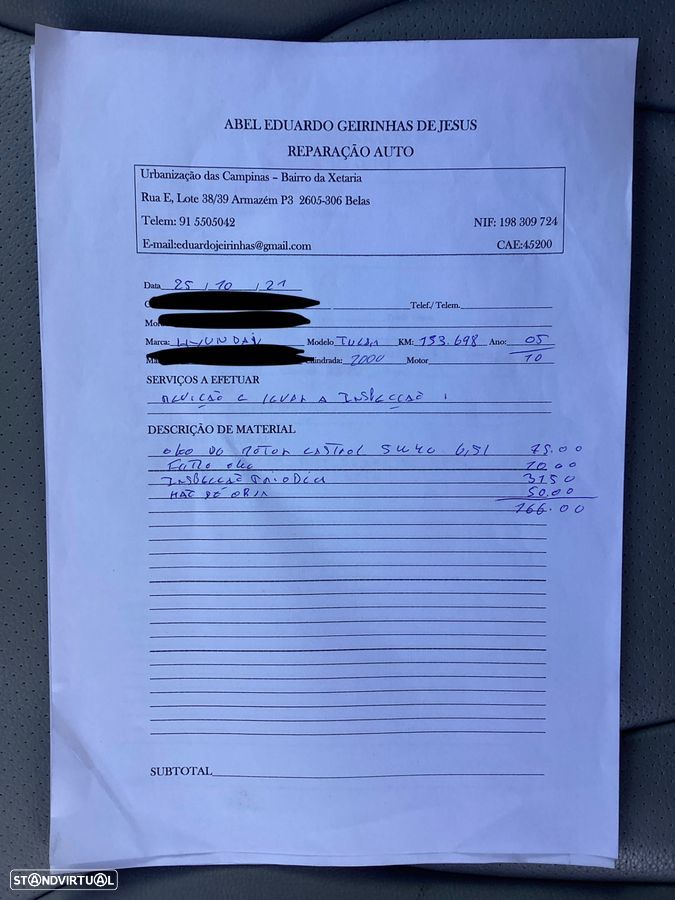 ABEL EDUARDO GEIRINHAS DE JESUS
REPARAÇÃO AUTO
Urbanização das Campinas – Bairro da Xetaria
Rua E, Lote 38/39 Armazém P3 2605-306 Belas
Telem: 91 5505042 NIF: 198 309 724
E-mail:eduardojeirinhas@gmail.com CAE:45200
Data 25 / 10 / 21
Telef./ Telem.
Mor
Marca: HYUNDAI Modelo TUCSON KM: 153.698 Ano: 05
Cilindrada: 2000 Motor 10
SERVIÇOS A EFETUAR
REVISÃO E LEVAR A INSPECÇÃO
DESCRIÇÃO DE MATERIAL
OLEO DO MOTOR CASTROL 5W40 6,5L 75.00
FILTRO OLEO 10.00
INSPECCÃO PERIODICA 31.50
MÃO DE OBRA 50.00
166.00
SUBTOTAL
STANDVIRTUAL